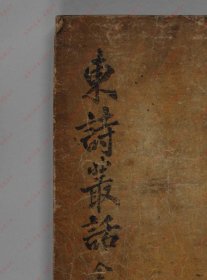 東詩叢話 全